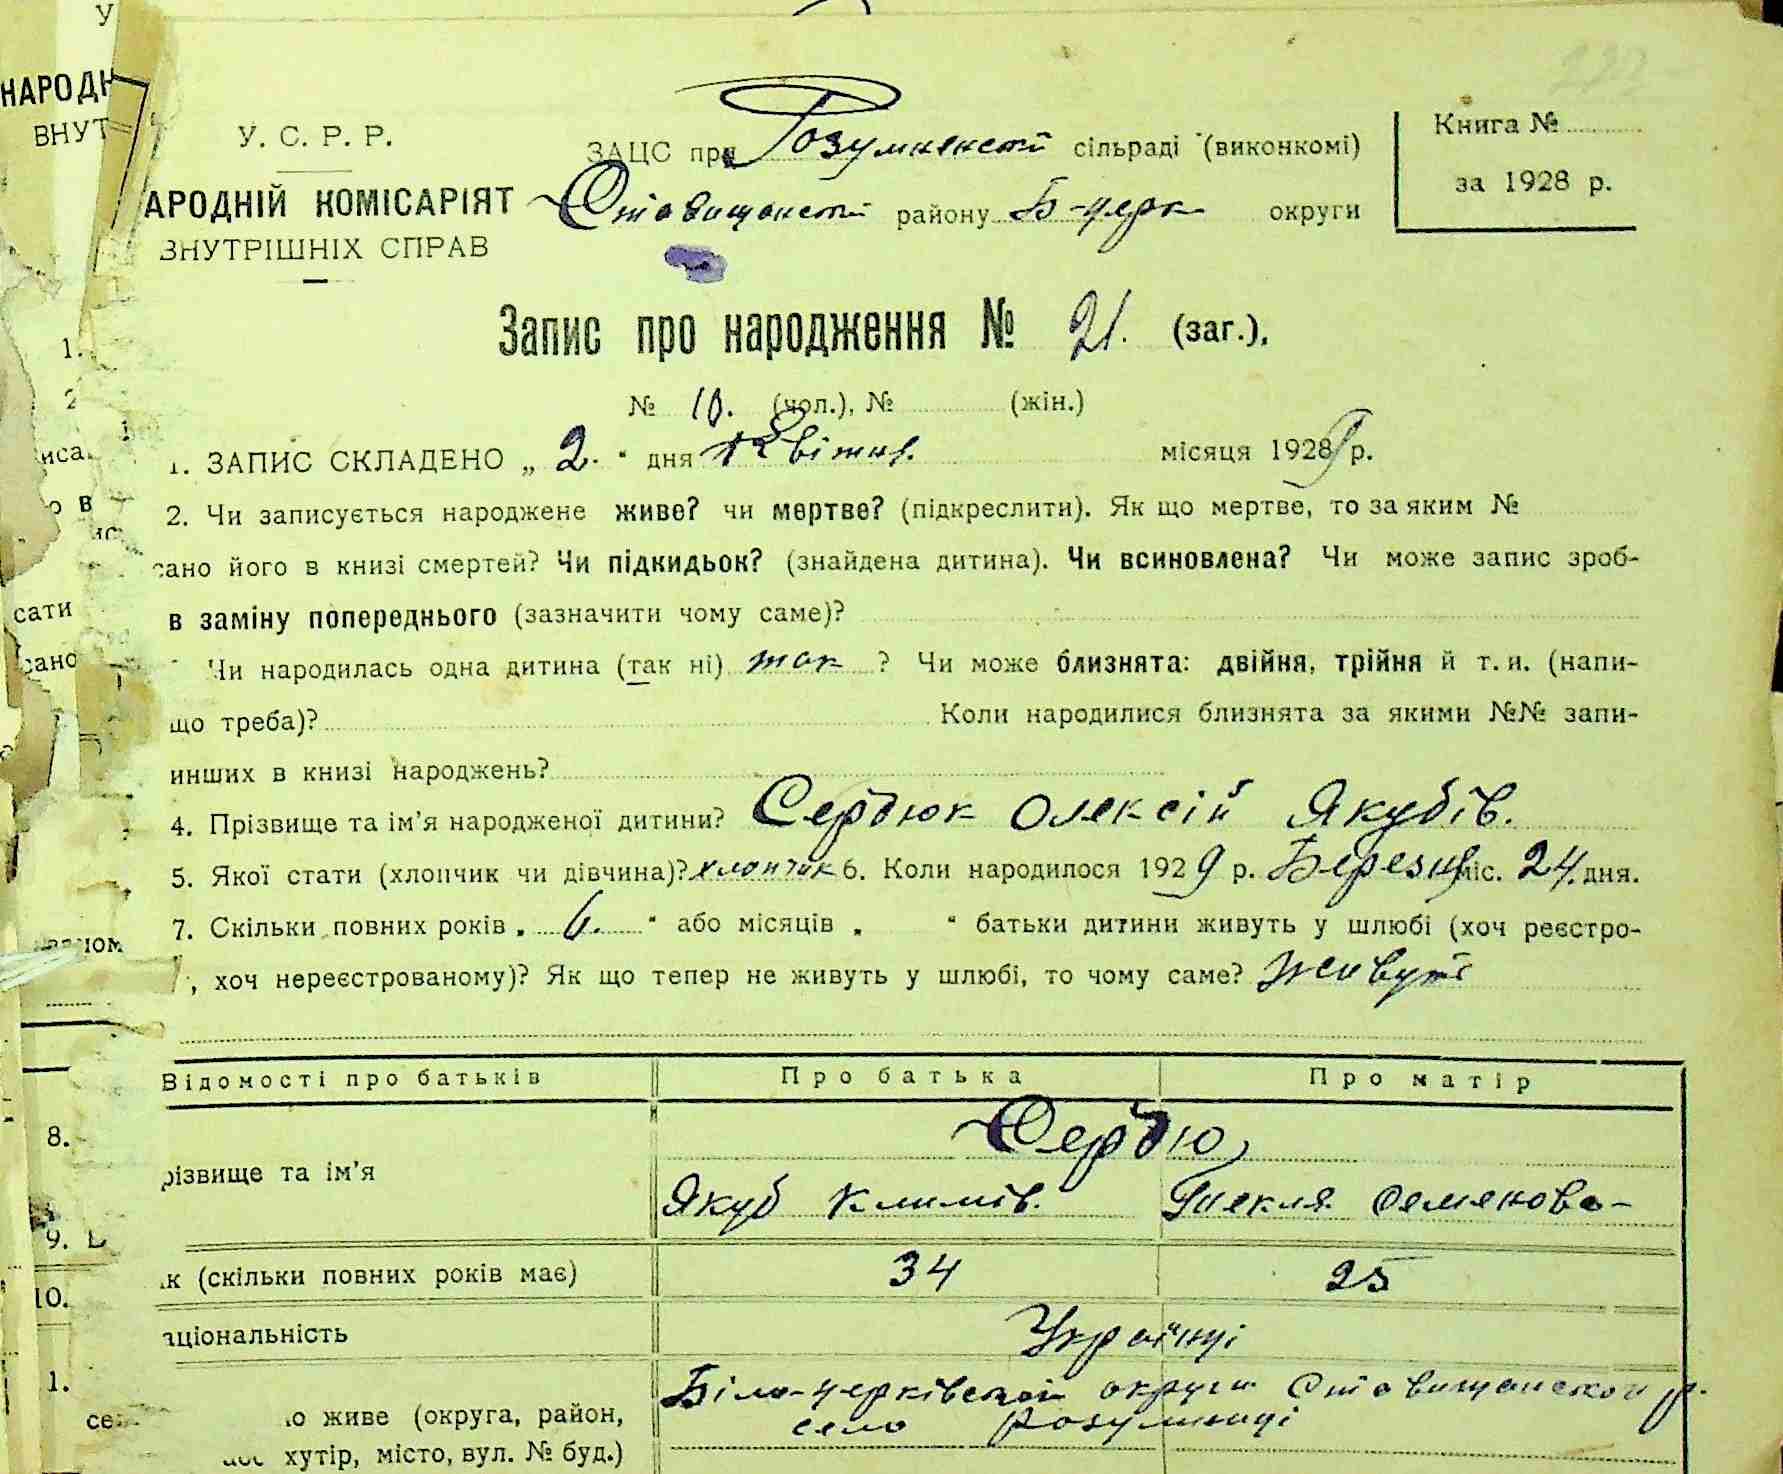 У
НАРОДН
ВНУТ
У. С. Р. Р.
АРОДНІЙ КОМІСАРІЯТ
ВНУТРІШНІХ СПРАВ
ЗАЦС при Розумнкистi сільраді (виконкомі)
Ставищанстi району Б-церк округи
Книга №
за 1928 р.
Запис про народження № 21. (заг.),
№ 10. (чол.), № (жін.)
1. ЗАПИС СКЛАДЕНО „ 2. " дня Квітня місяця 1928 9 р.
2. Чи записується народжене живе? чи мертве? (підкреслити). Як що мертве, то за яким №
сано його в книзі смертей? Чи підкидьок? (знайдена дитина). Чи всиновлена? Чи може запис зроб-
в заміну попереднього (зазначити чому саме)?
Чи народилась одна дитина (так ні) так ? Чи може близнята: двійня, трійня й т. и. (напи-
що треба)? Коли народилися близнята за якими №№ запи-
инших в книзі народжень?
4. Прізвище та ім'я народженої дитини? Сердюк Олексій Якубів.
5. Якої стати (хлопчик чи дівчина)? хлопчик 6. Коли народилося 1929 р. Березня міс. 24. дня.
7. Скільки повних років „ 6. " або місяців „ " батьки дитини живуть у шлюбі (хоч реєстро-
, хоч нереєстрованому)? Як що тепер не живуть у шлюбі, то чому саме? Живуть
Відомості про батьків Про батька Про матір
різвище та ім'я Сердю
Якуб Климів. Текля Семенова-
ік (скільки повних років має) 34 25
аціональність Українці
о живе (округа, район, Біло-церківської округи Ставищанской р.
хутір, місто, вул. № буд.) село Розумниці
1.
2
сати
сано
8.
9.
10.
1.